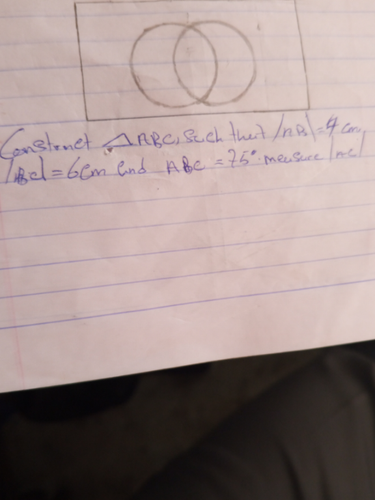 Construct △ABC, such that /AB/ = 4 cm,
/BC/ = 6cm and ABC = 75° measure /AC/